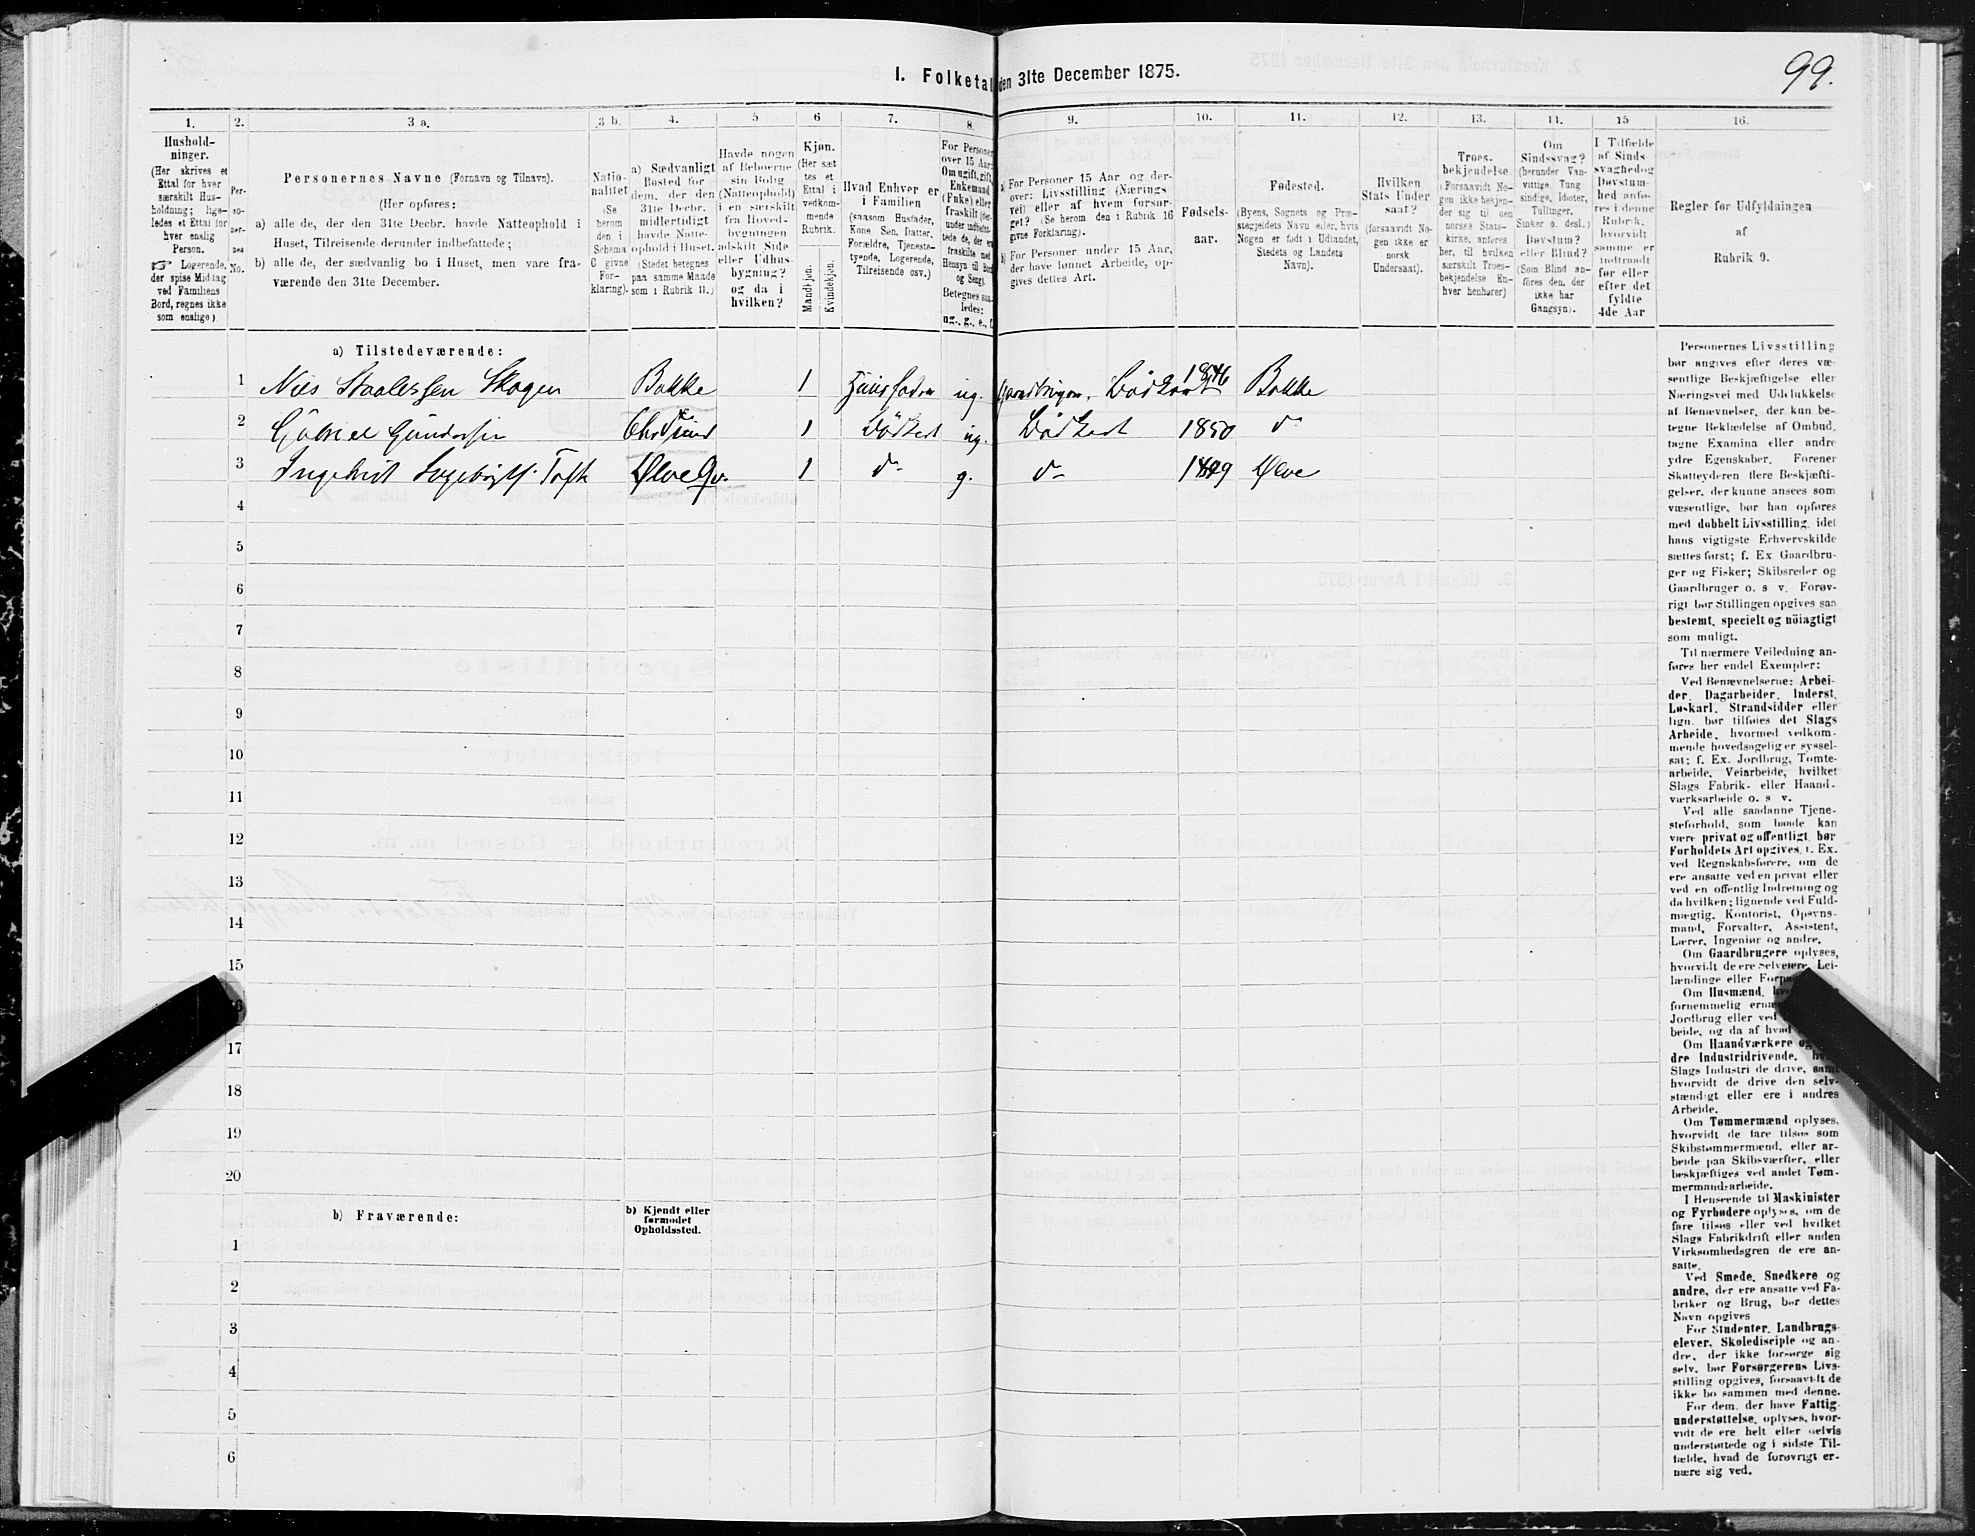 99.
I. Folketal den 31te December 1875.
1. 2. 3 a. 3 b. 4. 5 6 7. 8. 9. 10. 11. 12. 13. 14. 15 16.
Hushold-
ninger.
(Her skrives et
Ettal for hver
særskilt Hus-
holdning; lige-
ledes et Ettal for
hver enslig
Person.
☞ Logerende,
der spise Middag
ved Familiens
Bord, regnes ikke
som enslige)
Per-
so-
ner-
nes
No.
Personernes Navne (Fornavn og Tilnavn).
(Her opføres:
a) alle de, der den 31te Decbr. havde Natteophold i
Huset, Tilreisende derunder indbefattede;
b) alle de, der sædvanlig bo i Huset, men vare fra-
værende den 31te December.
Natio-
nalitet
(Se
herom
den i
Schema
C givne
For-
klaring).
a) Sædvanligt
Bosted for
dem, der den
31te Decbr.
midlertidigt
havde Natte-
ophold i Huset.
(Stedet betegnes
paa samme Maade
som i Rubrik 11.)
Havde nogen
af Beboerne
sin Bolig
(Natteophold)
i en særskilt
fra Hoved-
bygningen
adskilt Side
eller Udhus-
bygning?
og da i
hvilken?
Kjøn.
(Her sæt
tes et
Ettal i
vedkom-
mende
Rubrik.
Mandkjøn.
Kvindekjøn.
Hvad Enhver er
i Familien
(saasom Husfader,
Kone Søn, Datter,
Forældre, Tjeneste-
tyende, Logerende,
Tilreisende osv.)
For Personer
over 15 Aar:
Om ugift, gift,
Enkemand
(Enke) eller
fraskilt (der-
under indbefat-
tede de, der ere
fraskilte med
Hensyn til Bord
og Seng).
Betegnes saa-
ledes:
ug., g., e., f.
a) For Personer 15 Aar og der-
over: Livsstilling (Nærings
vei) eller af hvem forsør-
get? (Se herom den i Rubrik 16
givne Forklaring).
b) For Personer under 15 Aar,
der have lønnet Arbeide, op-
gives dettes Art.
Fødsels-
aar.
Fødested.
(Byens, Sognets og Præ-
stegjeldets Navn eller, hvis
Nogen er født i Udlandet,
Stedets og Landets
Navn).
Hvilken
Stats Under
saat?
(forsaavidt No-
gen ikke er
norsk
Undersaat).
Troes-
bekjendelse.
(Forsaavidt No-
gen ikke bekjen-
der sig til den
norske Stats-
kirke, anføres
her, til hvilken
særskilt Troes-
bekjendelse En-
hver henhører)
Om
Sindssvag?
(herunder Van-
vittige, Tung
sindige, Idioter,
Tullinger,
Sinker o. desl.)
Døvstum?
eller Blind?
(Som Blind an-
føres den, der
ikke har
Gangsyn).
I Tilfælde
af Sinds-
svaghed og
Døvstum-
hed anfø-
res i denne
Rubrik,
hvorvidt
samme er
indtraadt
før eller
efter det
fyldte
4de Aar
Regler for Udfyldningen
af
Rubrik 9.
a) Tilstedeværende:
1 Niels Staalessen Skogen Bakke 1 Huusfader ug. Gaardbruger, Bödker 1846 Bakke
2 Gabriel Gundersen Chr.sund 1 Bödker ug. Bödker 1850 d°
3 Ingebrigt Ingebrigts. Toft Ølve Qv. 1 d° g. d° 1849 Ølve
4
5
6
7
8
9
10
11
12
13
14
15
17
18
19
20
b) Fraværende:
b) Kjendt eller
formodet
Opholdssted.
1
2
3
4
5
6
Personernes Livsstilling
bør angives efter deres væ-
sentlige Beskjæftigelse eller
Næringsvei med Udelukkelse
af Benævnelser, der kun be-
tegne Beklædelse af Ombud,
tagne Examina eller andre
ydre Egenskaber. Forener
Skatteyderen flere Beskjæfti-
gelser, der kunne ansees som
væsentlige, bør han opføres
med dobbelt Livsstilling, idet
hans vigtigste Erhvervskilde
sættes først; f. Ex Gaardbru-
ger og Fisker; Skibsreder og
Gaardbruger o. s v. Forøv-
rigt bør Stillingen opgives saa
bestemt, specielt og nøiagtigt
som muligt.
Til nærmere Veiledning an-
føres her endel Exempler:
Ved Benævnelserne: Arbei-
der, Dagarbeider, Inderst,
Løskarl, Strandsidder eller
lign. bør tilføies det Slags
Arbeide, hvormed vedkom-
mende hovedsagelig er syssel-
sat; f. Ex. Jordbrug, Tomte-
arbeide, Veiarbeide, hvilket
Slags Fabrik- eller Haand-
værksarbeide o. s v.
Ved alle saadanne Tjene-
steforhold, som baade kan
være privat og offentligt, bør
Forholdets Art opgives, f. Ex.
ved Regnskabsførere, om de
ere ansatte ved en privat eller
ved en offentlig Indretning og
da hvilken; lignende ved Fuld-
mægtig, Kontorist, Opsyns-
mand, Forvalter, Assistent,
Lærer, Ingeniør og andre.
Om Gaardbrugere oplyses,
hvorvidt de ere Selveiere, Lei-
lændinge eller
Om Husmænd,
fornemmelig
Jordbrug eller ved
beide, og da af hvad
Om Haandværkere
dre Industridrivende,
Slags Industri de drive, samt
hvorvidt de drive den selv-
stændigt eller ere i andres
Arbeide.
Om Tømmermænd oplyses,
hvorvidt de fare tilsøs som
Skibstømmermænd, eller ar-
beide paa Skibsværfter, eller
beskjæftiges ved andet Tøm-
mermandsarbeide.
I Henseende til Maskinister
og Fyrbødere oplyses, om de
fare tilsøs eller ved hvilket
Slags Fabrikdrift eller anden
Virksomhedsgren de ere an-
satte.
Ved Smede, Snedkere og
andre, der ere ansatte ved Fa-
briker og Brug, bør dettes
Navn opgives
For Studenter, Landbrugs-
elever, Skoledisciple og an-
dre, der ikke forsørge sig
selv, bør Forsørgerens Livs-
stilling opgives, forsaavidt de
ikke bo sammen med denne.
For dem, der have Fattig-
understøttelse, oplyses, hvor-
vidt de ere helt eller delvis
understøttede og i sidste Til-
fælde, hvad de forøvrigt er-
nære sig ved.